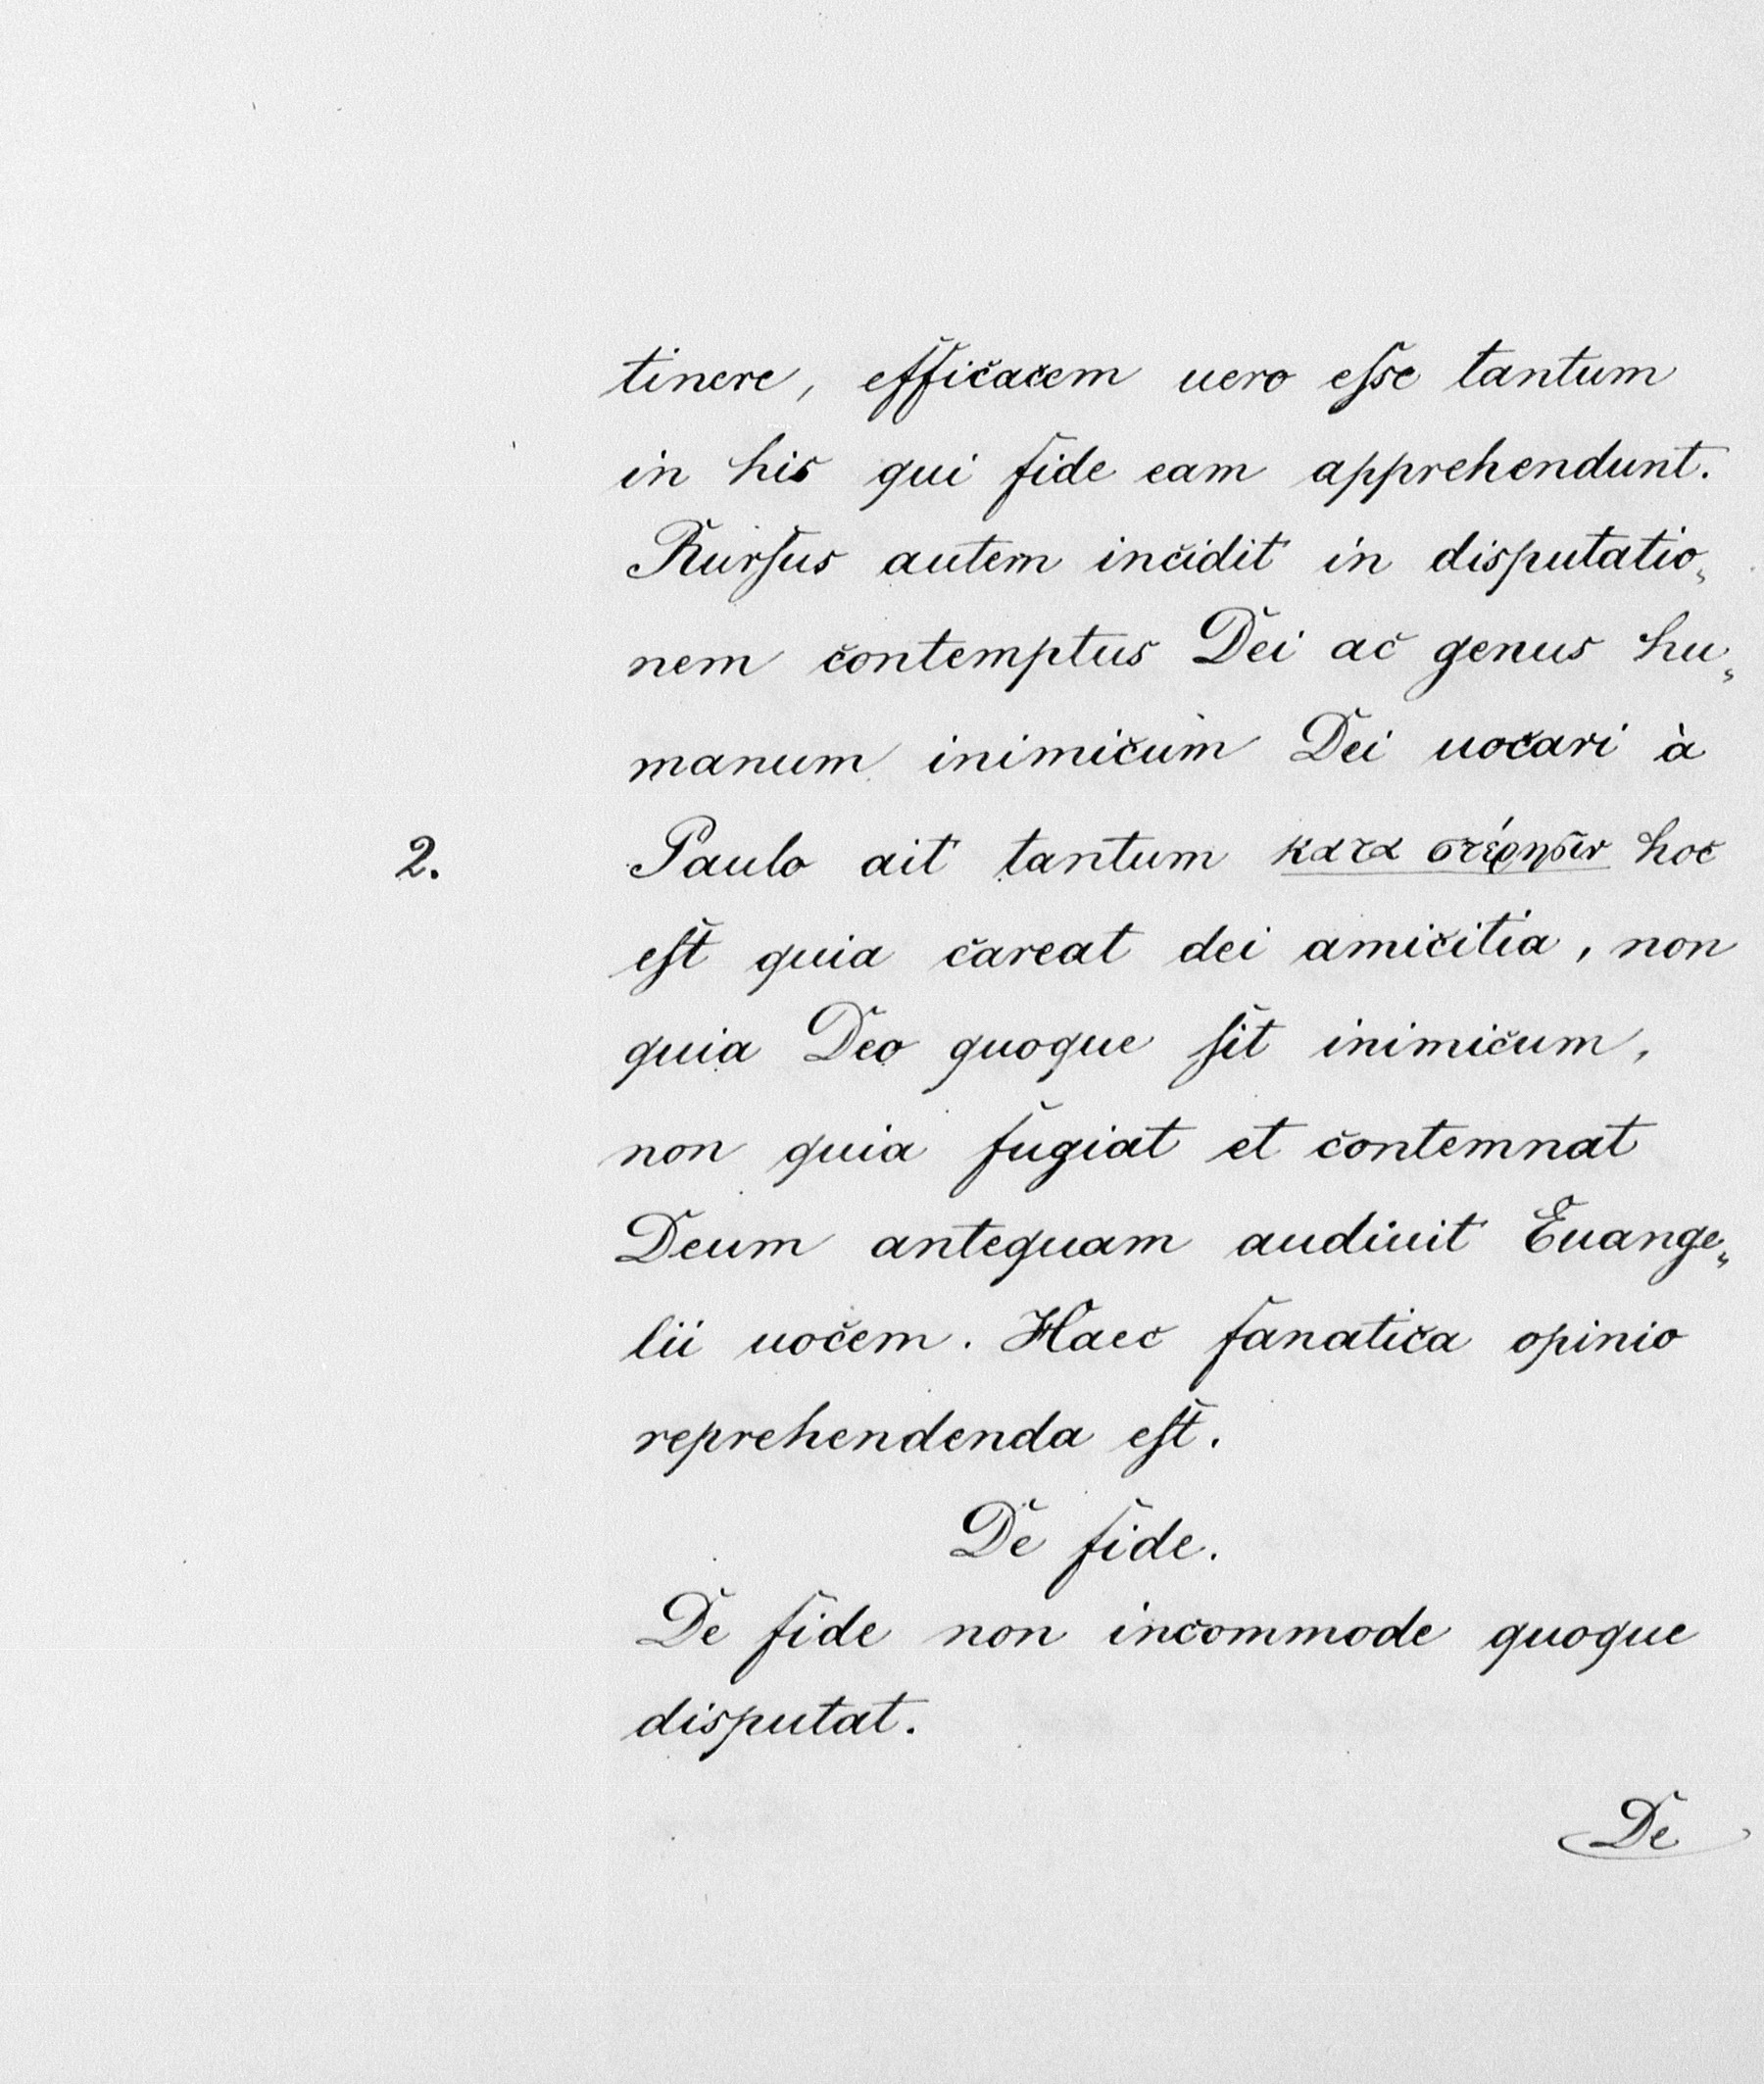 tinere, efficacem uero eſse tantum
in his qui fide eam apprehendunt.
Rurſus autem incidit in disputatio„
nem contemptus Dei ac genus hu„
manum inimicum Dei uocari à
2. Paulo ait tantum κατα στέρησιν hoc
eſt quia careat dei amicitia, non
quia Deo quoque ſit inimicum,
non quia fugiat et contemnat
Deum antequam audiuit Euange„
lii uocem. Haec fanatica opinio
reprehendenda eſt.
De fide.
De fide non incommode quoque
disputat.
De